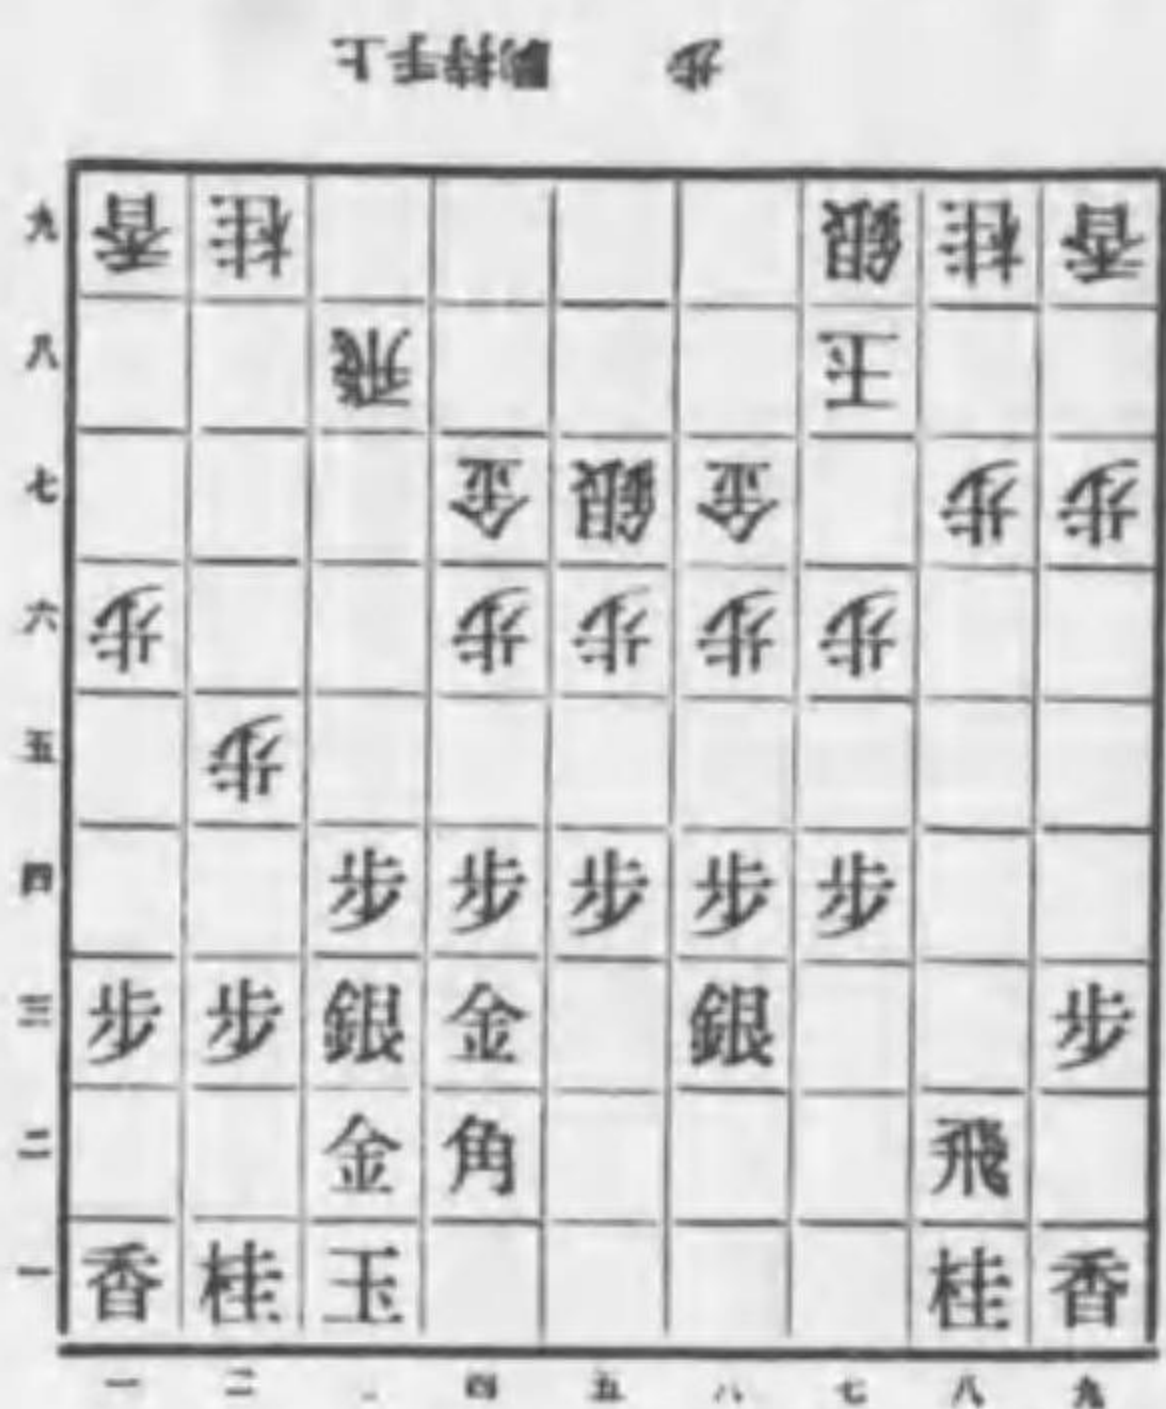 上手持駒 歩
九 香 桂 銀 桂 香
八 飛 王
七 金 銀 金 歩 歩
六 歩 歩 歩 歩 歩
五 歩
四 歩 歩 歩 歩 歩
三 歩 歩 銀 金 銀 歩
二 金 角 飛
一 香 桂 玉 桂 香
一 二 四 五 七 八 九